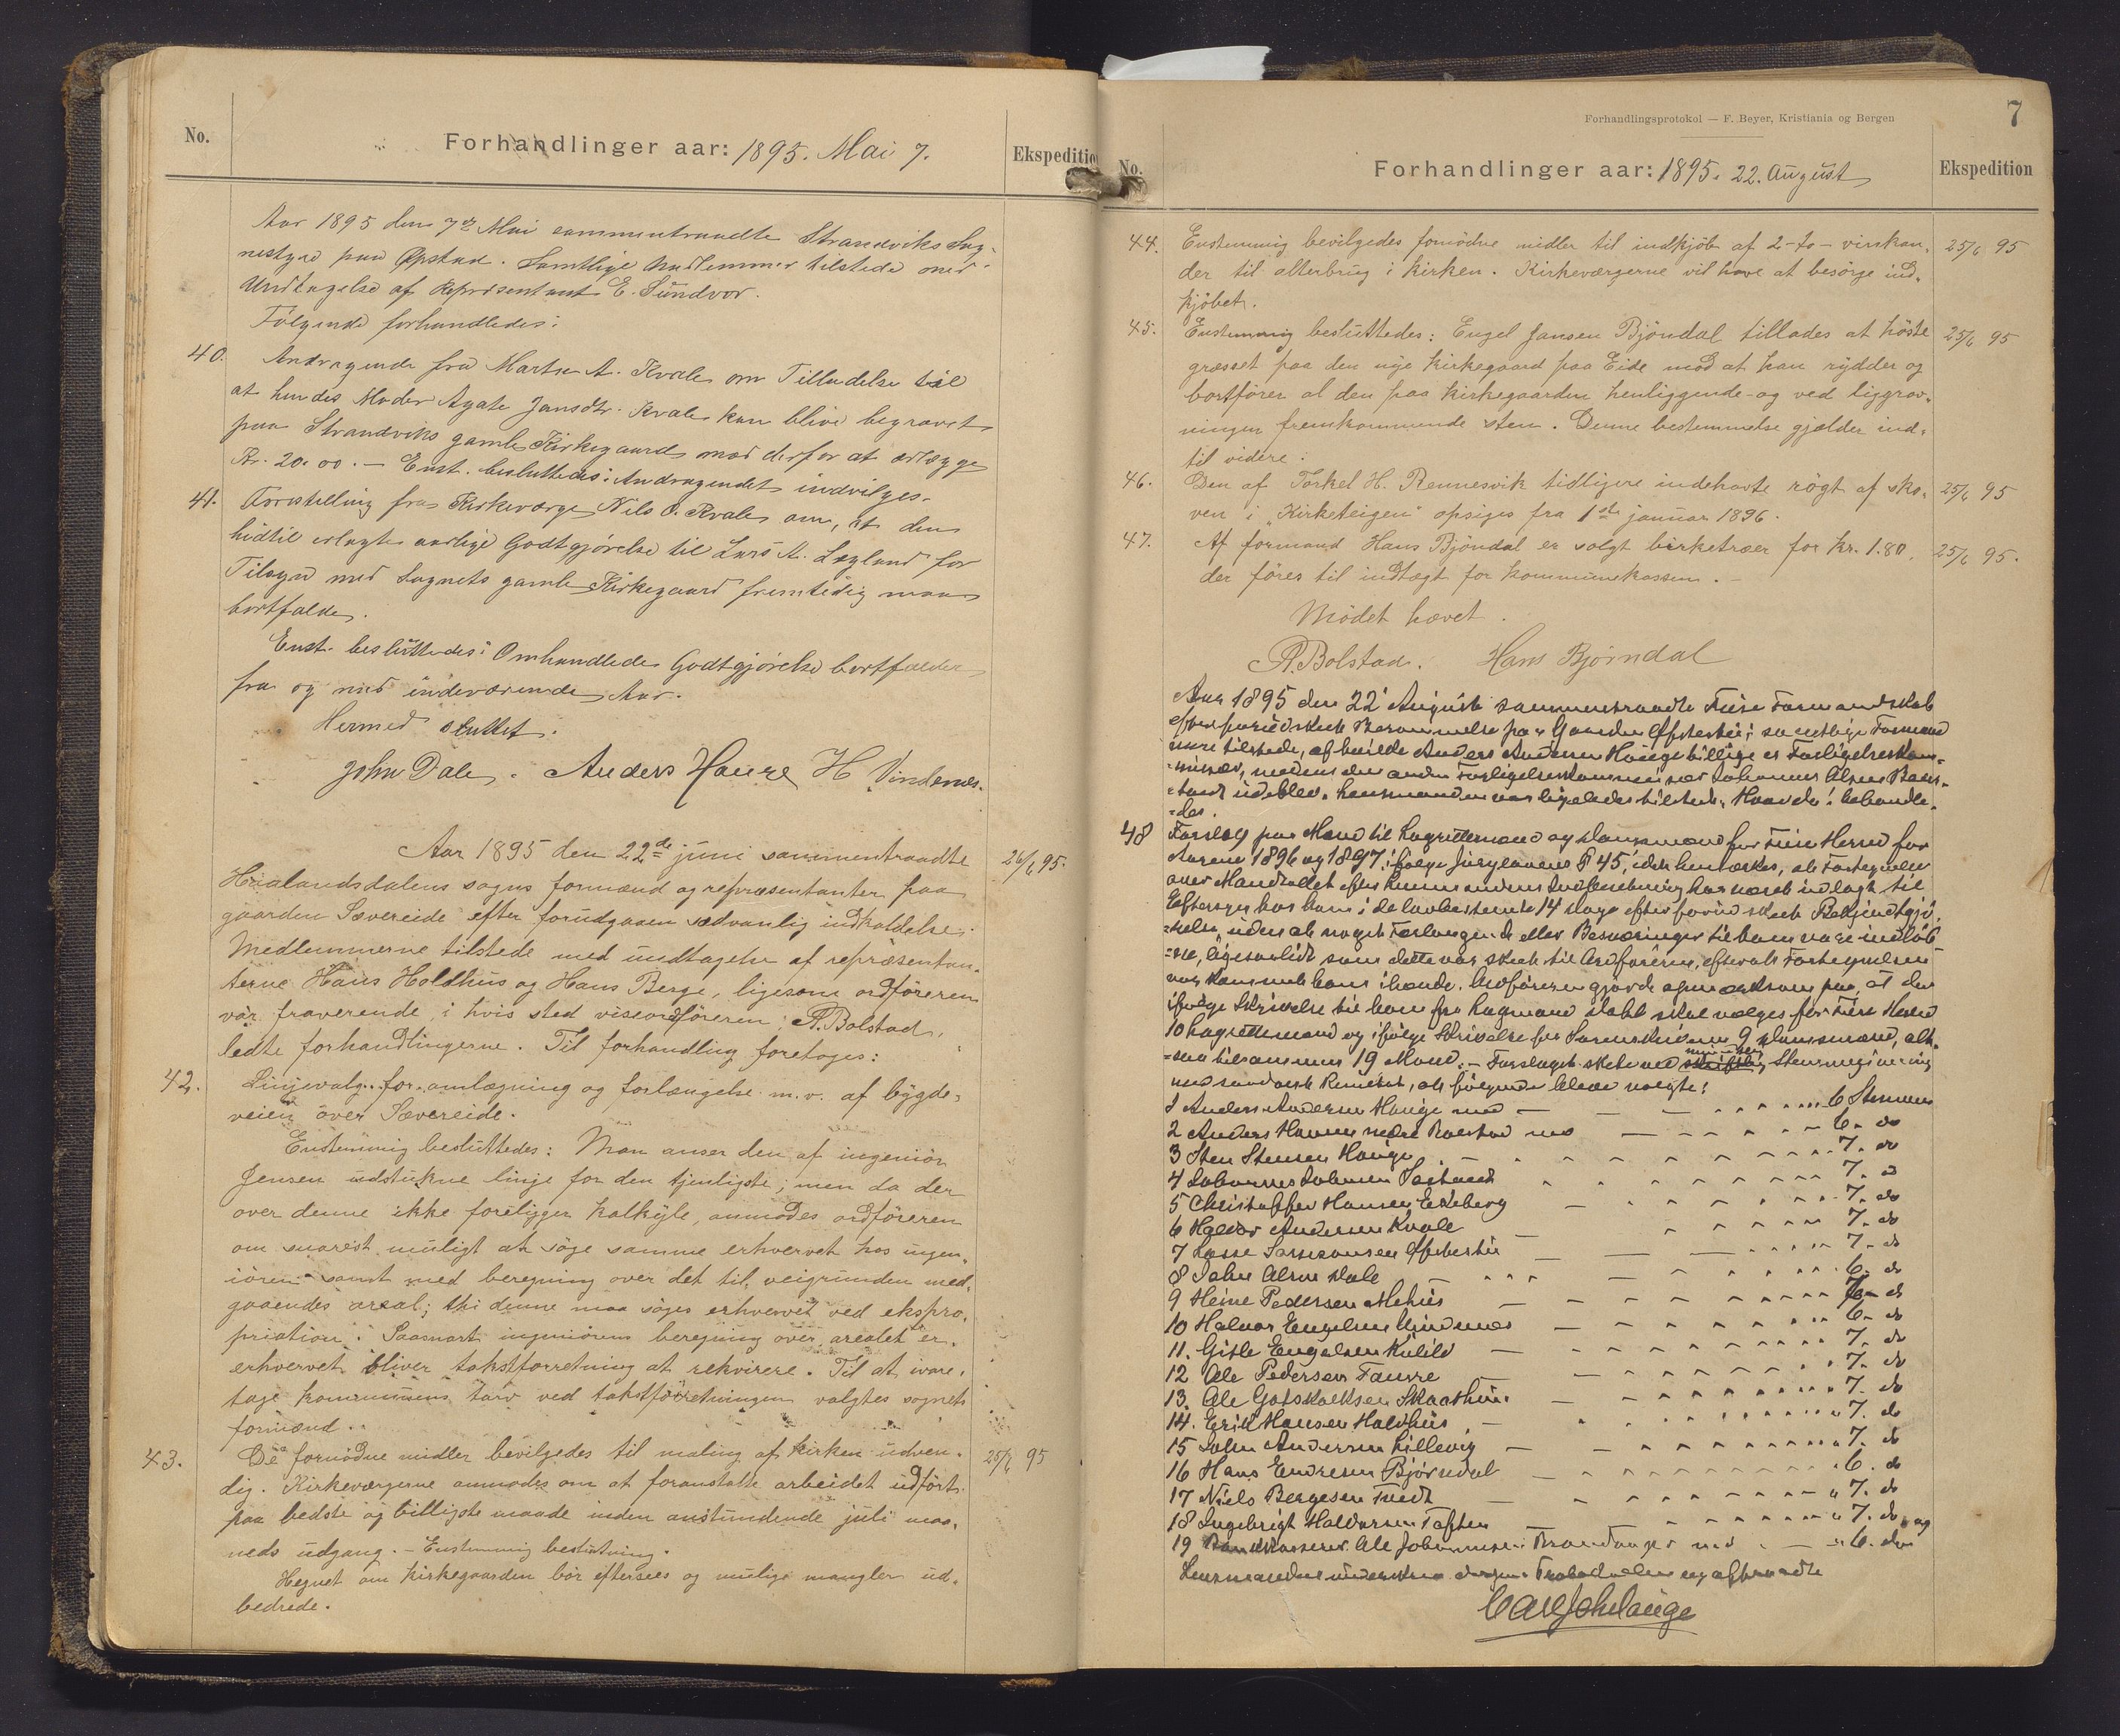 No.
Forhandlinger aar: 1895. Mai 7.
Ekspeditio
Aar 1895 den 7de Mai sammentraadte Strandviks Sog-
nestyre paa Opstad. Samtlige Medlemmer tilstede med
Undtagelse af Repræsentant E. Sundvor.
Følgende forhandledes:
40. Andragende fra Marta A. Kvale om Tilladelse til
at hendes Moder Agate Jansdtr. Kvale kan blive begravet
paa Strandviks gamle Kirkegaard mod derfor at erlægge
Kr. 20.00. — Enst. besluttedes: Andragendet indvilges.
41. Forestilling fra Kirkeværge Nils O. Kvale om, at den
hidtil erlagte aarlige Godtgjørelse til Lars A. Legland for
Tilsyn med Sognets gamle Kirkegaard fremtidig maa
bortfalde.
Enst. besluttedes: Omhandlede Godtgjørelse bortfalder
fra og med indeværende Aar.
Hermed sluttet.
John Dale. Anders Haure H Vindenes.
Aar 1895 den 22de juni sammentraadte 26/6 95.
Haalandsdalens sogns formænd og repræsentanter paa
gaarden Sævereide efter forudgaaen sedvanlig indkaldelse.
Medlemmerne tilstede med undtagelse af repræsentan-
terne Hans Holdhus og Hans Berge, ligesom ordføreren
var fraverende, i hvis sted viseordføreren, A. Bolstad,
ledte forhandlingerne. Til forhandling foretoges:
42. Linjevalg for omlægning og forlængelse m.v. af bygde-
veien over Sævereide.
Enstemmig besluttedes: Man anser den af ingeniør
Jensen udstukne linje for den tjenligste; men da der
over denne ikke foreligger kalkyle, anmodes ordføreren
om snarest muligt at søge samme erhvervet hos ingen-
iøren samt med beregning over det til veigrunden med-
gaaendes areal; thi denne maa søges erhvervet ved ekspro-
priation. Saasnart ingeniørens beregning over arealet er
erhvervet bliver takstforretning at rekvirere. Til at ivare-
tage kommunens tarv ved takstforretningen valgtes sognets
formænd.
43. De fornødne midler bevilgedes til maling af kirken udven- 25/6 95
dig. Kirkeværgerne anmodes om at foranstalte arbeidet udført
paa bedste og billigste maade inden anstundende juli maa-
neds udgang. — Enstemmig beslutning.
Hegnet om kirkegaarden bør eftersees og mulige mangler ud-
bedrede.
Forhandlingsprotokol — F. Beyer, Kristiania og Bergen
7
No.
Forhandlinger aar: 1895. 22. August
Ekspedition
44. Enstemmig bevilgedes fornødne midler til indkjøb af 2-to- vinkan- 25/6 95
der til alterbrug i kirken. Kirkeværgerne vil have at besørge ind-
kjøbet.
45. Enstemmig besluttedes: Engel Jansen Bjøndal tillades at høste 25/6 95
græsset paa den nye kirkegaard paa Eide mod at han rydder og
bortfører al den paa kirkegaarden henliggende og ved liggrav-
ningen fremkommende sten. Denne bestemmelse gjælder ind-
til videre.
46. Den af Torkel H. Rennesvik tidligere indehavte røgt af sko- 25/6 95
ven i "Kirketeigen" opsiges fra 1ste januar 1896.
47. Af formand Hans Bjøndal er solgt birketræer for kr. 1.80, 25/6 95.
der føres til indtægt for kommunekassen. —
Mødet hævet.
A. Bolstad. Hans Bjørndal
Aar 1895 den 22 August sammentraadte Fuse Formandskab
efter forudskeet Berammelse paa Gaarden Øfstestu; samtlige Formænd
være tilstede, af hvilke Anders Andersen Hauge tillige er Forligelseskom-
-missær, medens den anden Forligelseskommissær Johannes Olsen
udeblev. Lensmanden var ligeledes tilstede. Hvorda: behandle-
-des.
48 Forslag paa Mænd til Lagrettemænd og Domsmænd for Fuse Herred for
Aarene 1896 og 1897, ifølge Jurylovens § 45, idet bemærkes, at Fortegnelse
over Mandtallet efter Lensmandens har været udlagt til
Eftersyn hos ham i de lovbestemte 14 Dage efter forud skeet Bekjendtgjø-
-relse, uden at noget Forlangende eller Besværinger til ham var indløb-
-ne, ligesaalidt som dette var skeet til Ordføreren, efterat Fortegnelsen
var kommet ham ihænde. Ordføreren gjorde opmærksom paa, at der
ifølge Skrivelse til ham fra Lagmand skal vælges for Fuse Herred
10 Lagrettemænd og ifølge Skrivelse fra Sorenskriveren 9 Domsmænd, alt-
-saa tilsammen 19 Mænd. — Forslaget skete ved mundtlig Stemmegivning
med saadant Resultat, at følgende bleve valgte:
1 Anders Andersen Hauge med — 6 Stemmer
2 Anders Hansen nedre Bolstad med — 6 — do
3 Sten Stensen Hauge — 7 — do
4 Johannes Johnsen — 7. do
5 Christoffer Hansen Eikeberg — 7. do
6 Haldor Andersen Kvale — 7. do
7 Lasse Øfstestu — 7 — do
8 John Olsen Dale — 6. do
9 Heine Pedersen Mehus — 7 — do
10 Halvor Engelsen Vindenes — 6 — do
11. Gitle Engelsen Kilild — 7. do
12 Ole Pedersen Fauvre — 7. do
13. Ole Gotskalksen Skaathun — 7. do
14. Erik Hansen Holdhus — 7. do
15 John Andersen Lillevig — 7. do
16 Hans Endresen Bjørndal — 6. do
17 Niels Børgesen Tvedt — 7. do
18 Ingebrigt Haldorsen Toften — 7. do, og
19 Ole Johannesen med — 6. do
Lensmanden underskrev Protokollen og aftraadte